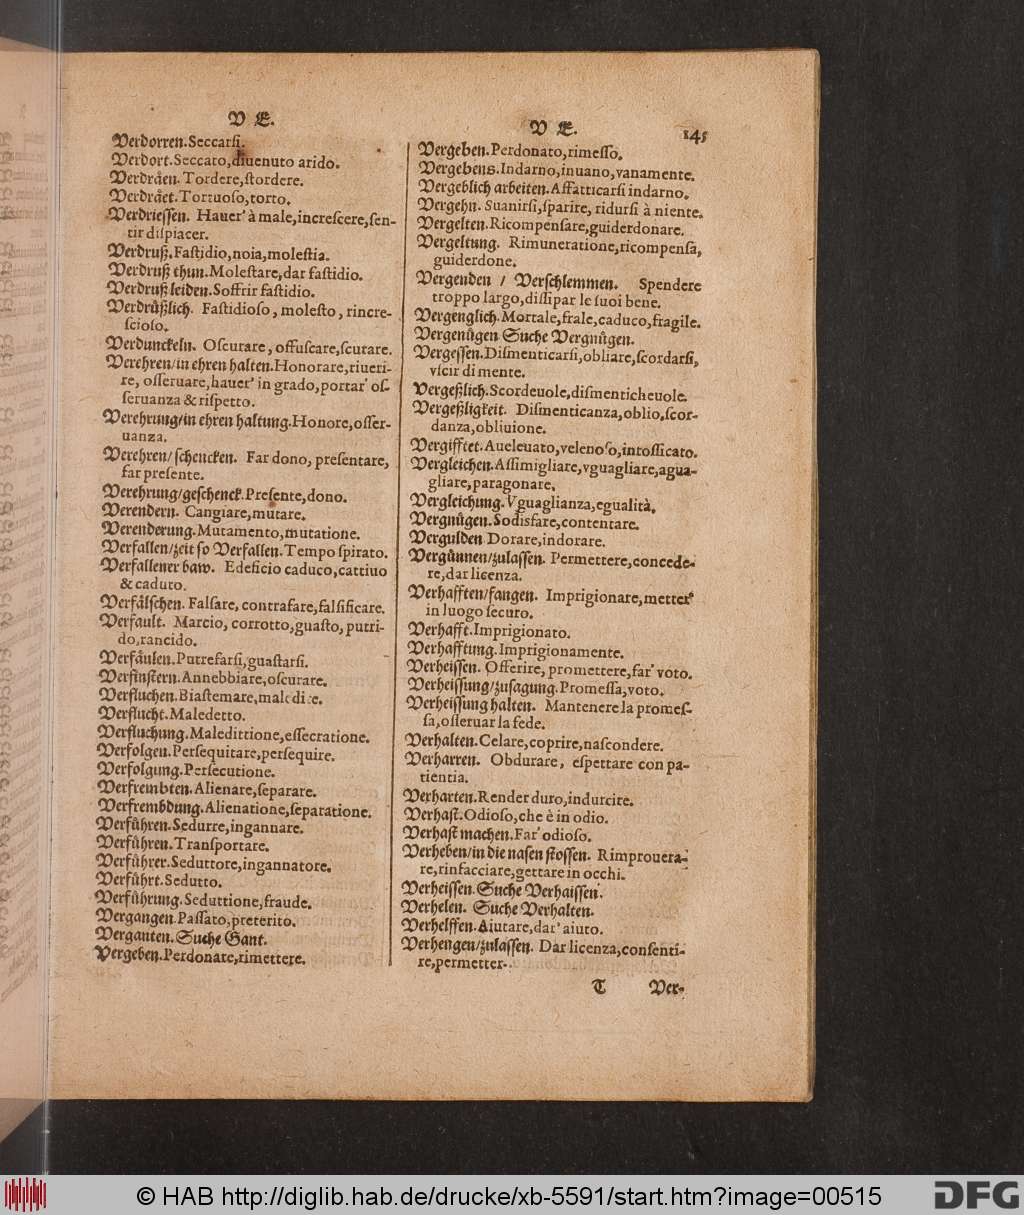 V E.
Verdorren. Seccarſi.
Verdort. Seccato, diuenuto arido.
Verdraͤen. Tordere, ſtordere.
Verdraͤet. Tortuoſo, torto.
Verdrieſſen. Hauer' à male, increſcere, ſen-
tir diſpiacer.
Verdruß. Faſtidio, noia, moleſtia.
Verdruß thun. Moleſtare, dar faſtidio.
Verdruß leiden. Soffrir faſtidio.
Verdruͤßlich. Faſtidioſo, moleſto, rincre-
ſcioſo.
Verdunckeln. Oſcurare, offuſcare, ſcurare.
Verehren/in ehren halten. Honorare, riueri-
re, oſſeruare, hauer' in grado, portar' oſ-
ſeruanza & riſpetto.
Verehrung/in ehren haltung. Honore, oſſer-
uanza.
Verehren/ſchencken. Far dono, preſentare,
far preſente.
Verehrung/geſchenck. Preſente, dono.
Verendern. Cangiare, mutare.
Verenderung. Mutamento, mutatione.
Verfallen/zeit ſo Verfallen. Tempo ſpirato.
Verfallener baw. Edeficio caduco, cattiuo
& caduto.
Verfaͤlſchen. Falſare, contrafare, falſificare.
Verfault. Marcio, corrotto, guaſto, putri-
do, rancido.
Verfaͤulen. Putrefarſi, guaſtarſi.
Verfinſtern. Annebbiare, oſcurare.
Verfluchen. Biaſtemare, maledire.
Verflucht. Maledetto.
Verfluchung. Maledittione, eſſecratione.
Verfolgen. Perſequitare, perſequire.
Verfolgung. Perſecutione.
Verfrembten. Alienare, ſeparare.
Verfrembdung. Alienatione, ſeparatione.
Verfuͤhren. Sedurre, ingannare.
Verfuͤhren. Tranſportare.
Verfuͤhrer. Seduttore, ingannatore.
Verfuͤhrt. Sedutto.
Verfuͤhrung. Seduttione, fraude.
Vergangen. Paſſato, preterito.
Verganten. Suche Gant.
Vergeben. Perdonare, rimettere.
V E. 145
Vergeben. Perdonato, rimeſſo.
Vergebens. Indarno, inuano, vanamente.
Vergeblich arbeiten. Affatticarſi indarno.
Vergehn. Suanirſi, ſparire, ridurſi à niente.
Vergelten. Ricompenſare, guiderdonare.
Vergeltung. Rimuneratione, ricompenſa,
guiderdone.
Vergenden / Verſchlemmen. Spendere
troppo largo, diſſipar le ſuoi bene.
Vergenglich. Mortale, frale, caduco, fragile.
Vergenuͤgen Suche Vergnuͤgen.
Vergeſſen. Diſmenticarſi, obliare, ſcordarſi,
vſcir di mente.
Vergeßlich. Scordeuole, diſmenticheuole.
Vergeßligkeit. Diſmenticanza, oblio, ſcor-
danza, obliuione.
Vergifftet. Aueleuato, velenoſo, intoſſicato.
Vergleichen. Aſſimigliare, vguagliare, agua-
gliare, paragonare.
Vergleichung. Vguaglianza, egualità.
Vergnuͤgen. Sodisfare, contentare.
Vergulden Dorare, indorare.
Verguͤnnen/zulaſſen. Permettere, concede-
re, dar licenza.
Verhafften/fangen. Imprigionare, metter'
in luogo ſecuro.
Verhafft. Imprigionato.
Verhafftung. Imprigionamente.
Verheiſſen. Offerire, promettere, far' voto.
Verheiſſung/zuſagung. Promeſſa, voto.
Verheiſſung halten. Mantenere la promeſ-
ſa, oſſeruar la fede.
Verhalten. Celare, coprire, naſcondere.
Verharren. Obdurare, eſpettare con pa-
tientia.
Verharten. Render duro, indurcire.
Verhaſt. Odioſo, che è in odio.
Verhaſt machen. Far' odioſo.
Verheben/in die naſen ſtoſſen. Rimprouera-
re, rinfacciare, gettare in occhi.
Verheiſſen. Suche Verhaiſſen.
Verhelen. Suche Verhalten.
Verhelffen. Aiutare, dar' aiuto.
Verhengen/zulaſſen. Dar licenza, conſenti-
re, permetter.
T Ver-
© HAB http://diglib.hab.de/drucke/xb-5591/start.htm?image=00515
DFG